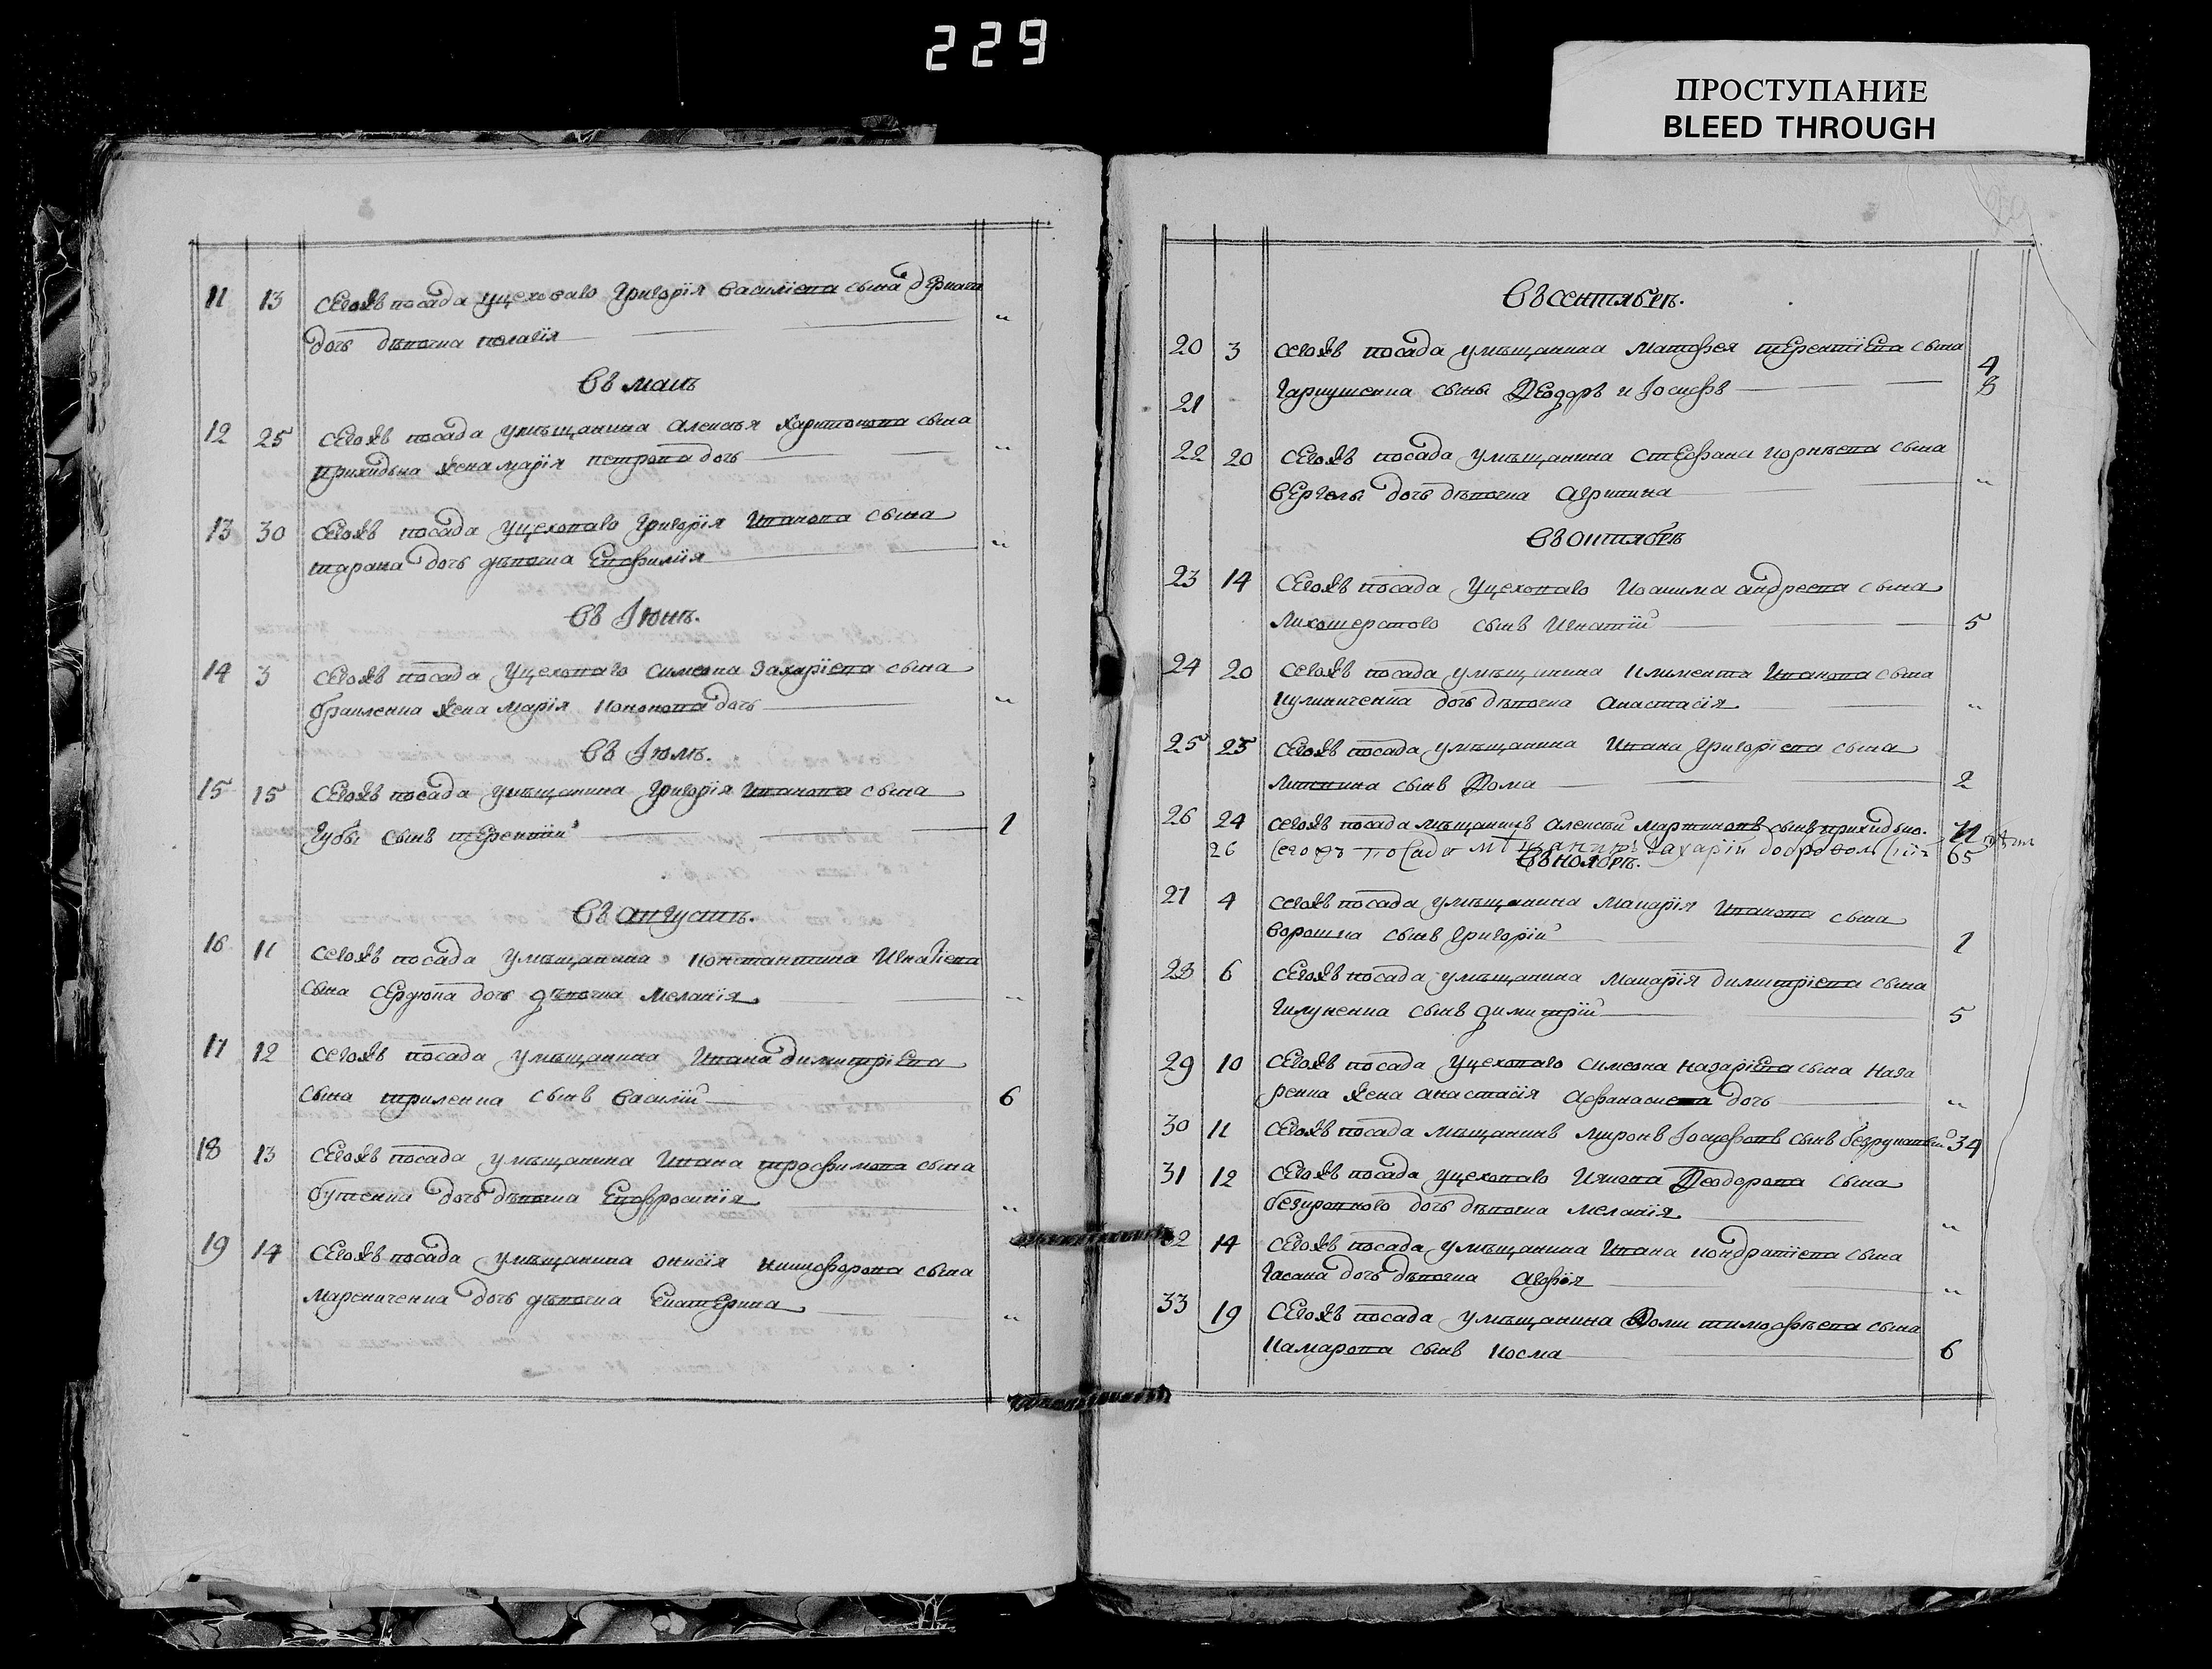 229
ПРОСТУПАНИЕ
BLEED THROUGH
11 13 Тогожъ посада уцеховаго Григорія Василіева сына
дочь дѣвочка Пелагія "
Въ маіѣ
12 25 Тогожъ посада умѣщанина Алексѣя Харитонова сына
Прихидька жена Марія Петрова дочь "
13 30 Тогожъ посада уцеховаго Григорія Иванова сына
Тарана дочь дѣвочка Евфимія "
Въ Іюнѣ.
14 3 Тогожъ посада уцеховаго Симеона Захаріева сына
жена Марія Кононова дочь "
Въ Іюлѣ.
15 15 Тогожъ посада умѣщанина Григорія Иванова сына
Губы сынъ Терентій 1
Въ Августѣ.
16 11 Тогожъ посада умѣщанина Константина Игнатіева
сына Сердюка дочь дѣвочка Меланія "
17 12 Тогожъ посада умѣщанина Ивана Димитріева
сына сынъ Василій 6
18 13 Тогожъ посада умѣщанина Ивана Трофимова сына
Бутенка дочь дѣвочка Евфросинія "
19 14 Тогожъ посада умѣщанина Онисія Никифорова сына
Марениченка дочь дѣвочка Екатерина "
Въ Сентябрѣ.
20 3 Тогожъ посада умѣщанина Матфея Терентіева сына 4
21 Гаркушенка сыны Ѳеодоръ и Іосифъ 3
22 20 Тогожъ посада умѣщанина Стефана Корнѣева сына
Верголы дочь дѣвочка Агрипина "
Въ Октябрѣ
23 14 Тогожъ посада уцеховаго Иоакима Андреева сына
Лихошерстого сынъ Игнатій 5
24 20 Тогожъ посада умѣщанина Климента Иванова сына
Кулиниченка дочь дѣвочка Анастасія "
25 23 Тогожъ посада умѣщанина Ивана Григоріева сына
Литвина сынъ Ѳома 2
26 24 Тогожъ посада мѣщанинъ Алексѣй Мартиновъ сынъ Прихидько.
26 Тогожъ посада мѣщанинъ Захарій 65
Въ ноябрѣ.
27 4 Тогожъ посада умѣщанина Макарія Иванова сына
Ворошка сынъ Григорій 1
28 6 Тогожъ посада умѣщанина Макарія Димитріева сына
сынъ Димитрій 5
29 10 Тогожъ посада уцеховаго Симеона Назаріева сына Наза
ренка жена Анастасія Афанасиева дочь "
30 11 Тогожъ посада мѣщанинъ Миронъ Іосифовъ сынъ Безрукавый 34
31 12 Тогожъ посада уцеховаго Якова Ѳеодорова сына
Безкровного дочь дѣвочка Меланія "
32 14 Тогожъ посада умѣщанина Ивана Кондратіева сына
Гасана дочь дѣвочка Агафія "
33 19 Тогожъ посада умѣщанина Ѳоми Тимофѣева сына
Камарова сынъ Косма 6